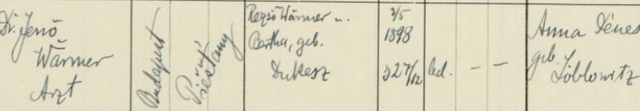 Dr. Jenö
Wärmer
Arzt
Budapest
Piestany
Rezsö Wärmer u.
Bertha, geb.
Dukesz
3/5
1898
led. — —
Anna Dénes
geb.
Löblowitz